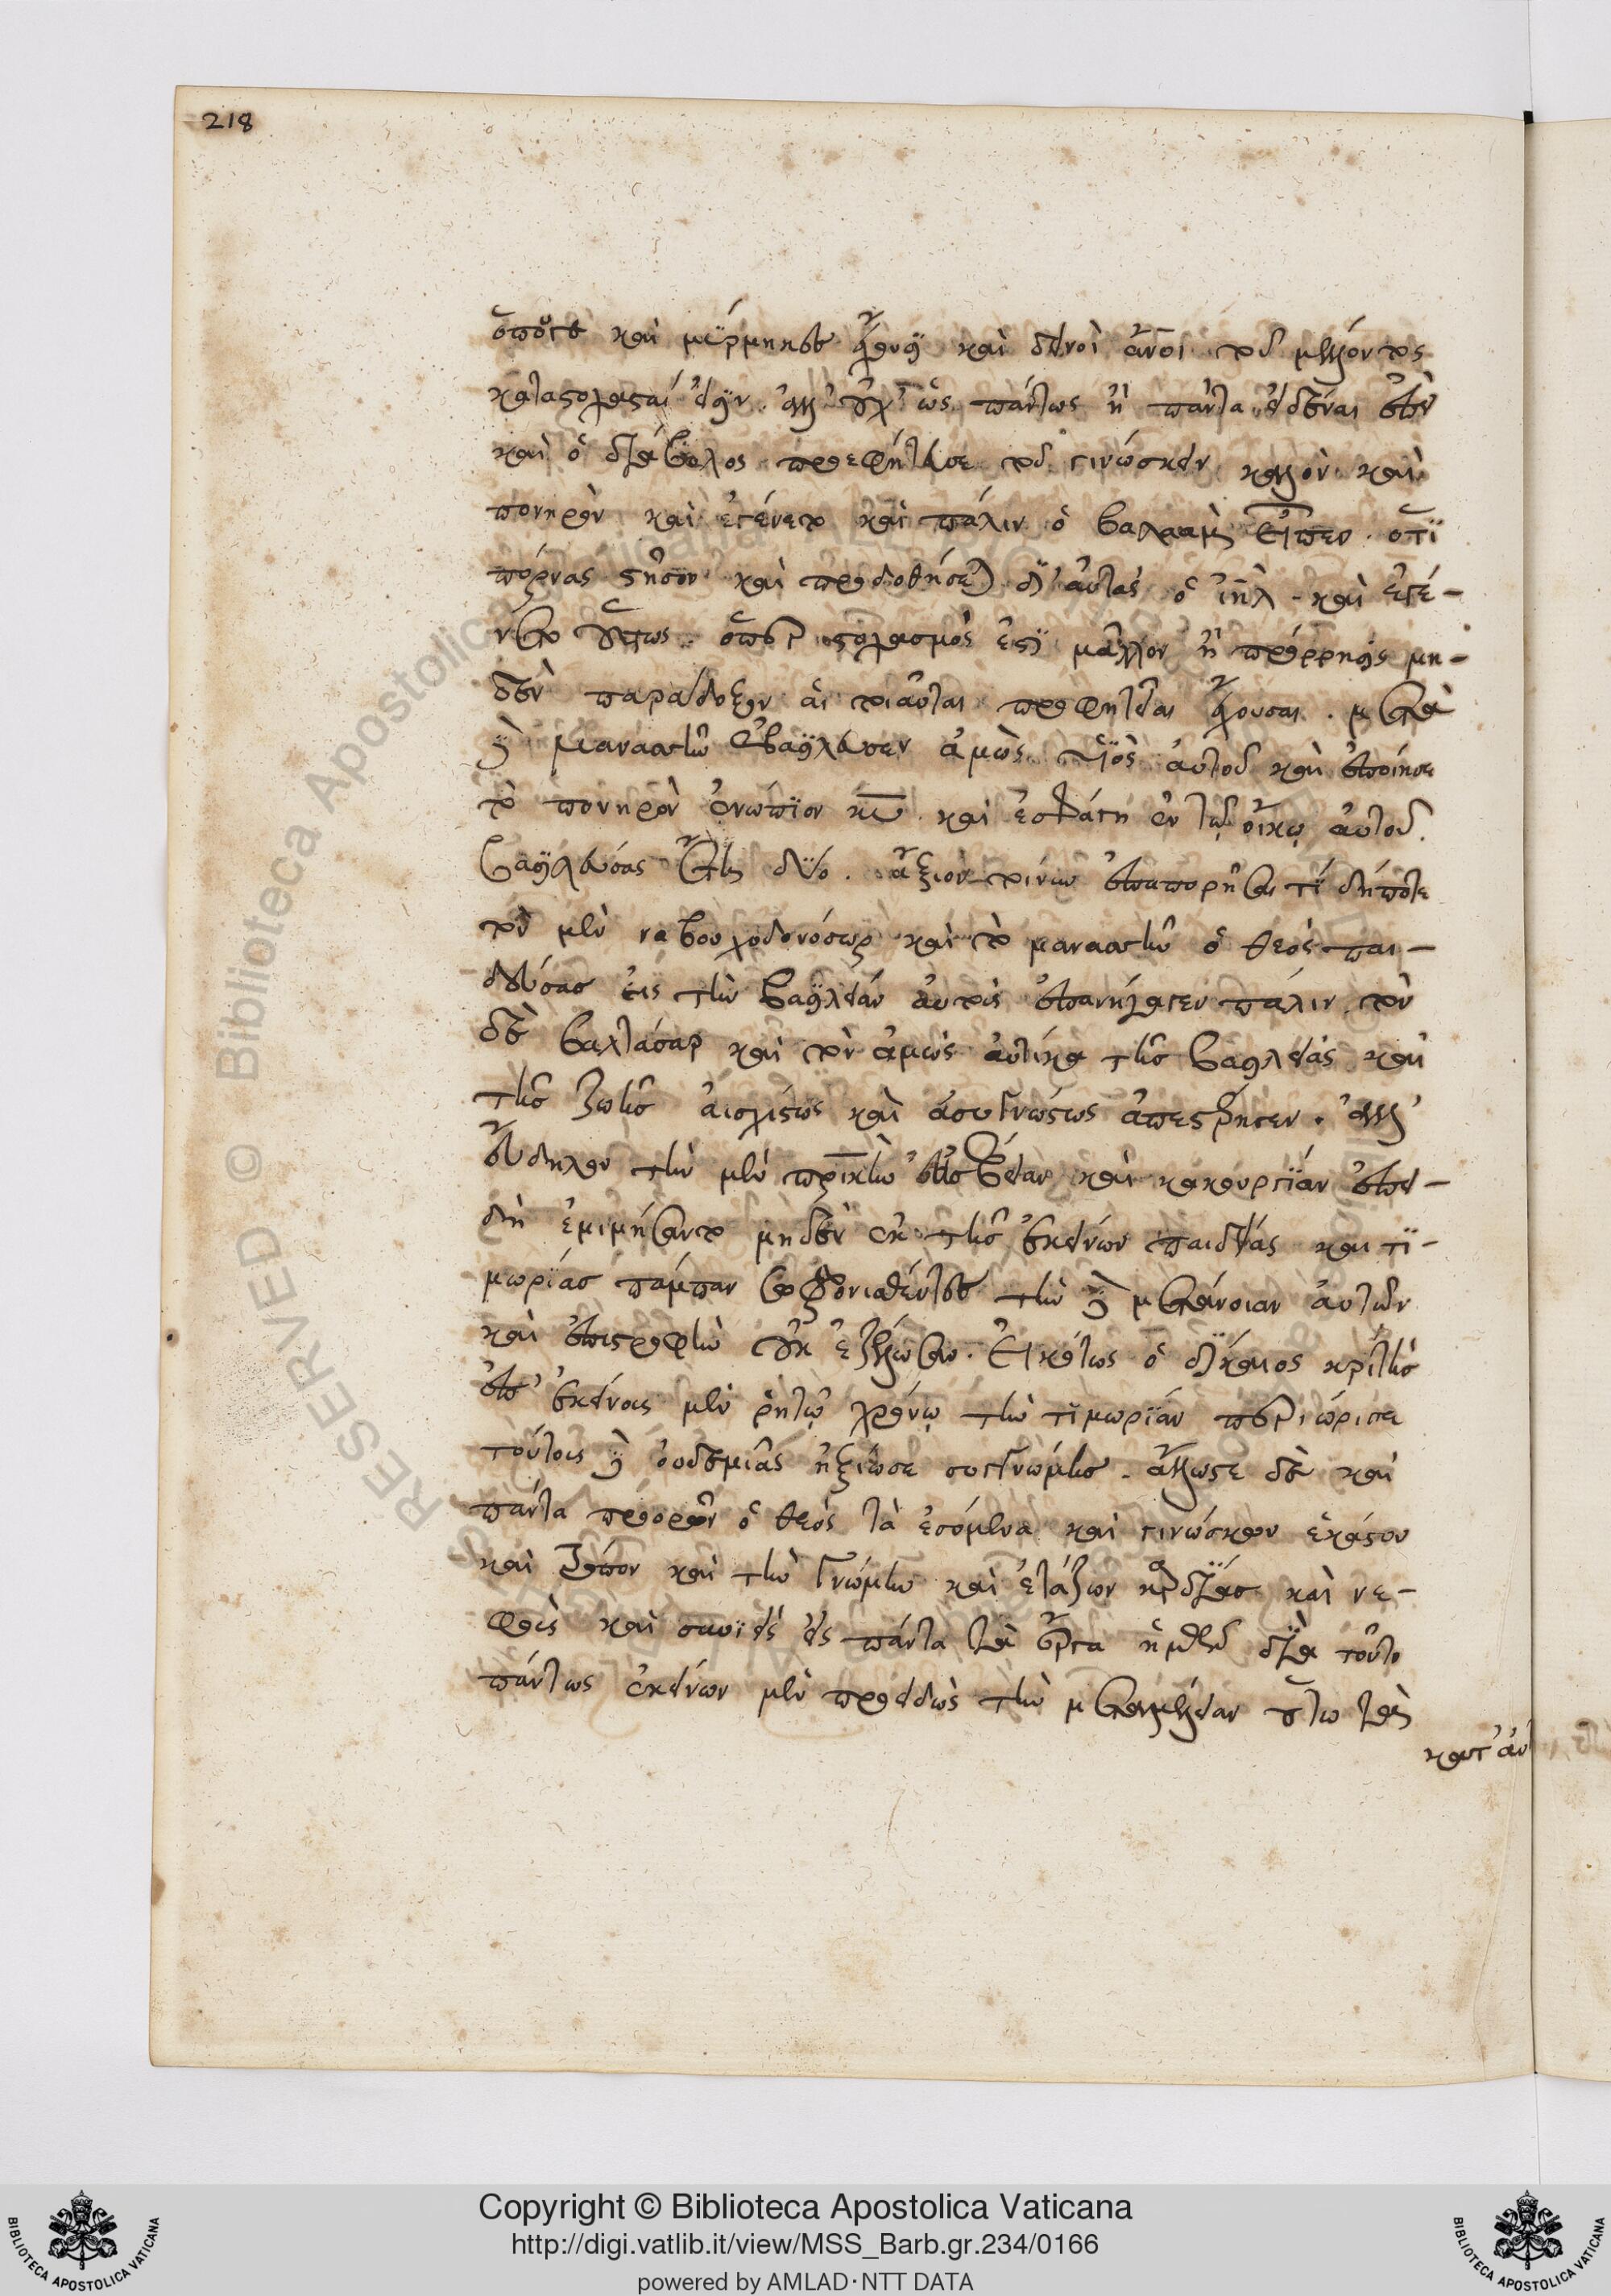 218
ὁπότε καὶ μύρμηκες ἔχουσι καὶ δεινοὶ ἄνοι τοῦ μέλλοντος
καταστοχάσασθαί εἰσιν. ἀλλ' οὐχ' ὡς πάντως ἢ πάντα εἰδέναι
καὶ ὁ διάβολος προεφήτευσε τοῦ γινώσκειν καλὸν καὶ
πονηρὸν καὶ ἐγένετο καὶ πάλιν ὁ βαλαὰμ εἶπεν. ὅτι
πόρνας στῆσον καὶ προδοθήσεται δι' αὐτὰς ὁ ιηλ. καὶ ἐγέ-
νετο οὕτως. ὅπερ στοχασμός ἐστι μᾶλλον ἢ πρόρρησις μη-
δὲν παράδοξον αἱ τοιαῦται προφητεῖαι ἔχουσαι. μετὰ
δὲ μανασσῆν ἐβασίλευσεν ἀμὼς υἱὸς αὐτοῦ καὶ ἐποίησε
τὸ πονηρὸν ἐνώπιον κυ καὶ ἐσφάγη ἐν τῷ οἴκῳ αὐτοῦ.
βασιλεύσας ἔτη δύο. ἄξιον τοίνυν ἐπαπορῆσαι τί δήποτε
τὸν μὲν ναβουχοδονόσωρ καὶ τὸ μανασσῆν ὁ θεὸς παι-
δεύσας εἰς τὴν βασιλείαν αὐτοὺς ἐπανήγαγεν πάλιν τὸν
δὲ βαλτάσαρ καὶ τὸν ἀμὼς αὐτίκα τῆς βασιλείας καὶ
τῆς ζωῆς αἰσχίστως καὶ ἀσυγνώστως ἀπεστέρησεν. ἀλλ'
εὔδηλον τὴν μὲν πρικὴν ἀσέβειαν καὶ κακουργίαν ἐπει-
δὴ ἐμιμήσαντο μηδὲν ἐκ τῆς ἐκείνων παιδείας καὶ τι-
μωρίας πάμπαν σωφρονισθέντες τὴν δὲ μετάνοιαν αὐτῶν
καὶ ἐπιστροφὴν οὐκ ἐζήλωσαν. εἰκότως ὁ δίκαιος κριτὴς
ἐπ' ἐκείνοις μὲν ῥητῷ χρόνῳ τὴν τιμωρίαν περιώρισε
τούτοις δὲ οὐδεμιᾶς ἠξίωσε συγγνώμης. ἄλλωστε δὲ καὶ
πάντα προορῶν ὁ θεὸς τὰ ἐσόμενα καὶ γινώσκων ἑκάστου
καὶ τρόπον καὶ τὴν γνώμην καὶ ἐτάζων καρδίας καὶ νε-
φροὺς καὶ συνιεὶς εἰς πάντα τὰ ἔργα ἡμῶν διὰ τοῦτο
πάντως ἐκείνων μὲν προειδὼς τὴν μεταμέλειαν οὕτω τὰς
κατ' αὐ
Copyright © Biblioteca Apostolica Vaticana
http://digi.vatlib.it/view/MSS_Barb.gr.234/0166
powered by AMLAD·NTT DATA